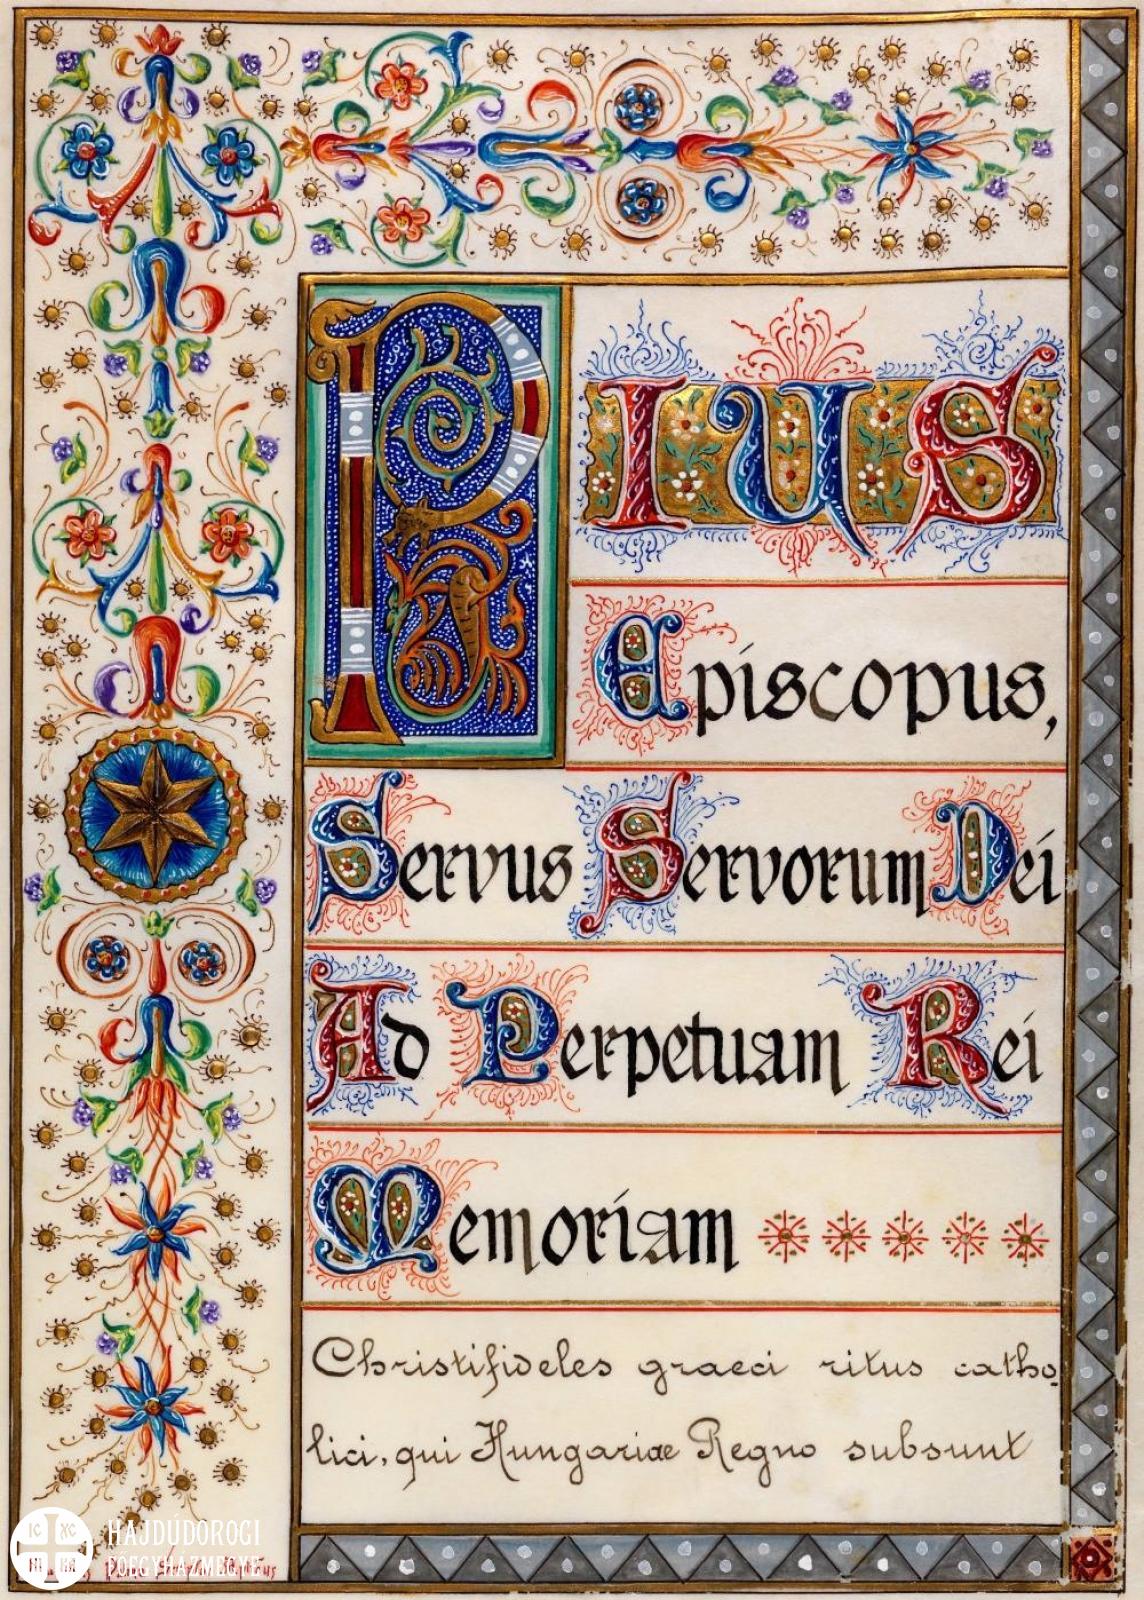 PIUS
Episcopus,
Servus Servorum Dei
Ad Perpetuam Rei
Memoriam
Christifideles graeci ritus catho
lici, qui Hungariae Regno subsunt
HAJDÚDOROGI
FŐEGYHÁZMEGYE
IC XC